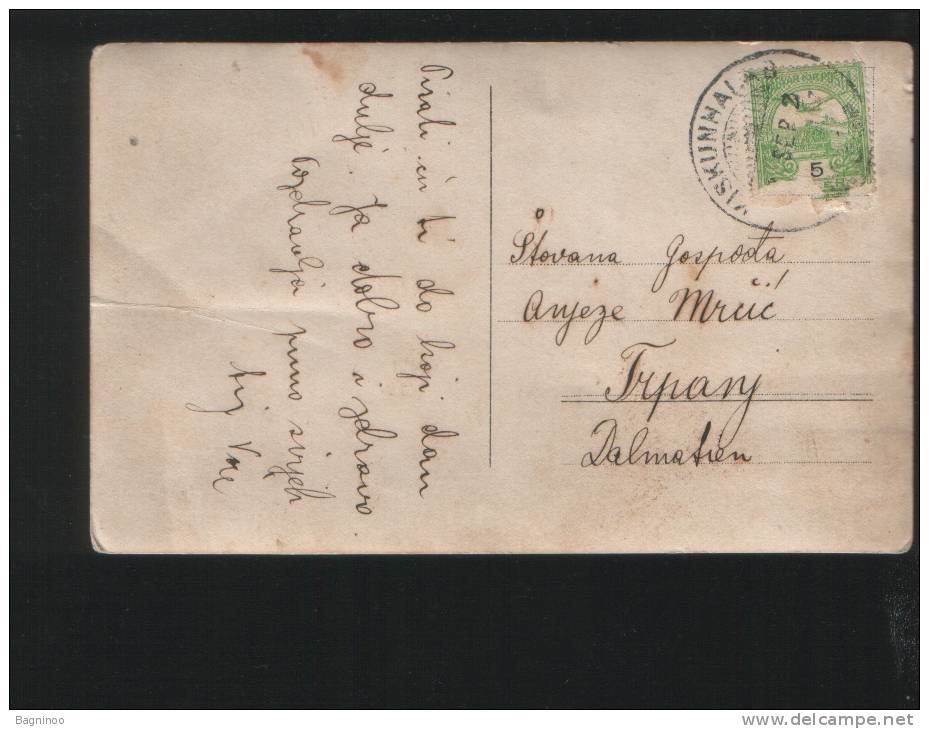 Pisati ću ti do koji dan
dulje. Ja dobro i zdravo
Pozdravlja puno svijeh
tvoj
VISKUNHALAS
SEP 2
5
Štovana Gospođa
Anjeze Mrčić
Trpanj
Dalmatien
Bagninoo
www.delcampe.net